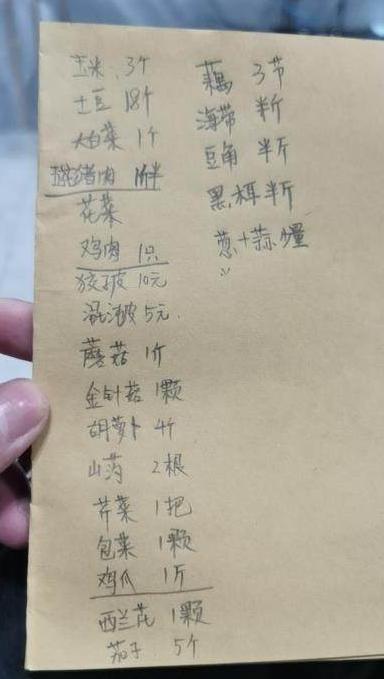 玉米 3个
土豆 18个
大白菜 1个
猪肉 1斤半
花菜
鸡肉 1只
饺子皮 10元
混沌皮 5元
蘑菇 1斤
金针菇 1颗
胡萝卜 4个
山药 2根
芹菜 1把
包菜 1颗
鸡爪 1斤
西兰花 1颗
茄子 5个
藕 3节
海带 半斤
豆角 半斤
黑木耳 半斤
葱+蒜 少量